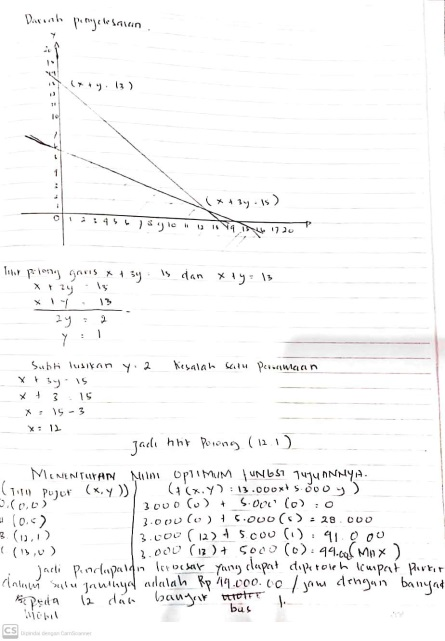 Daerah penyelesaian.
y
(x + y = 13)
(x + 3y = 15)
0 1 2 3 4 5 6 7 8 9 10 11 12 13 14 15 16 17 20
Titik potong garis x + 3y = 15 dan x + y = 13
x + 3y = 15
x + y = 13
2y = 2
y = 1
Subtitusikan y = 2 kesalah satu persamaan
x + 3y = 15
x + 3 = 15
x = 15 - 3
x = 12
Jadi titik potong (12 1)
MENENTUKAN Nilai OPTIMUM FUNGSI TUJUANNYA.
(Titik pojok (x,y)) (f(x,y) = 13.000x + 5.000 y)
(0,0) 3000 (0) + 5.000 (0) = 0
(0,5) 3.000 (0) + 5.000 (5) = 28.000
(12,1) 3.000 (12) + 5000 (1) = 91.000
(13,0) 3.000 (13) + 5000 (0) = 49.000 (MAX)
Jadi pendapatan terbesar yang dapat diperoleh tempat parkir
dalam satu jamnya adalah Rp 49.000.00 / jam dengan banyak
sepeda 12 dan banyak bus 1.
mobil
CS